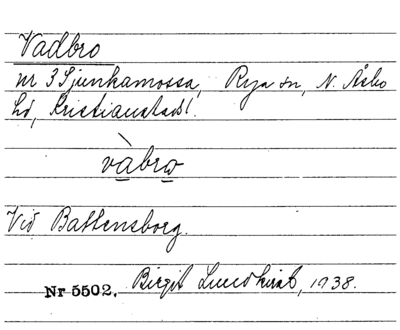 Vadbro
nr 3 Sjunkamossa, Rya sn, N. Åsbo
hd, Kristianstads l.
vàbro
Vid Battensborg.
Nr 5502. Birgit Lundkvist, 1938.